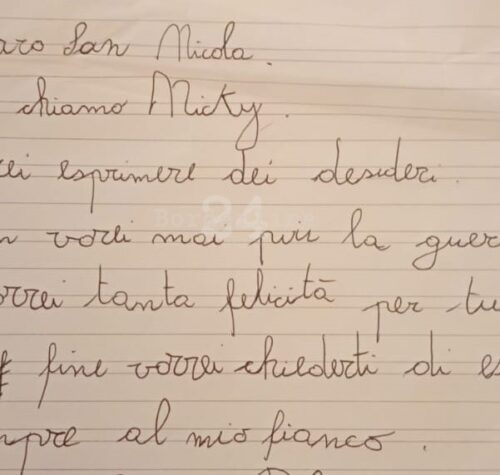 aro San Nicola.
chiamo Micky.
ei esprimere dei desideri.
n vorei mai più la guer
orrei tanta felicità per tu
fine vorrei chiederti di es
mpre al mio fianco.